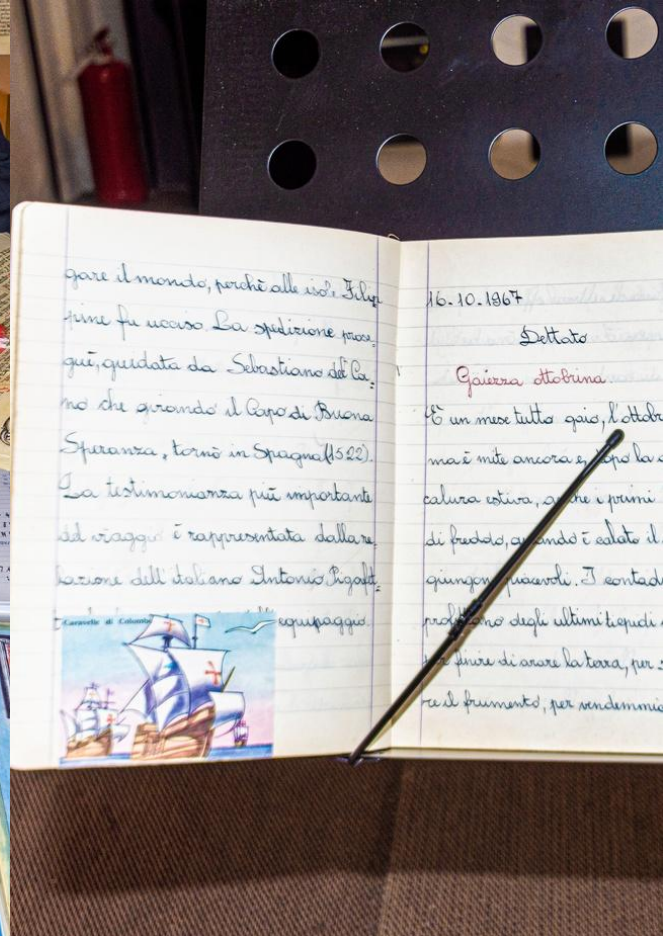 gare il mondo, perchè alle isole Filip
pine fu ucciso. La spedizione prose=
guì, guidata da Sebastiano del Ca=
no che girando il Capo di Buona
Speranza, tornò in Spagna (1522).
La testimonianza più importante
del viaggio è rappresentata dalla re=
lazione dell'italiano Antonio Pigafet=
equipaggio.
Caravelle di Colombo
16.10.1967
Dettato
Gaiezza ottobrina
È un mese tutto gaio, l'ottobr
ma è mite ancora e, dopo la
calura estiva, anche i primi
di freddo, quando è calato il
giungon piacevoli. I contad
profittano degli ultimi tiepidi
per finire di arare la terra, per
re il frumento, per vendemmia